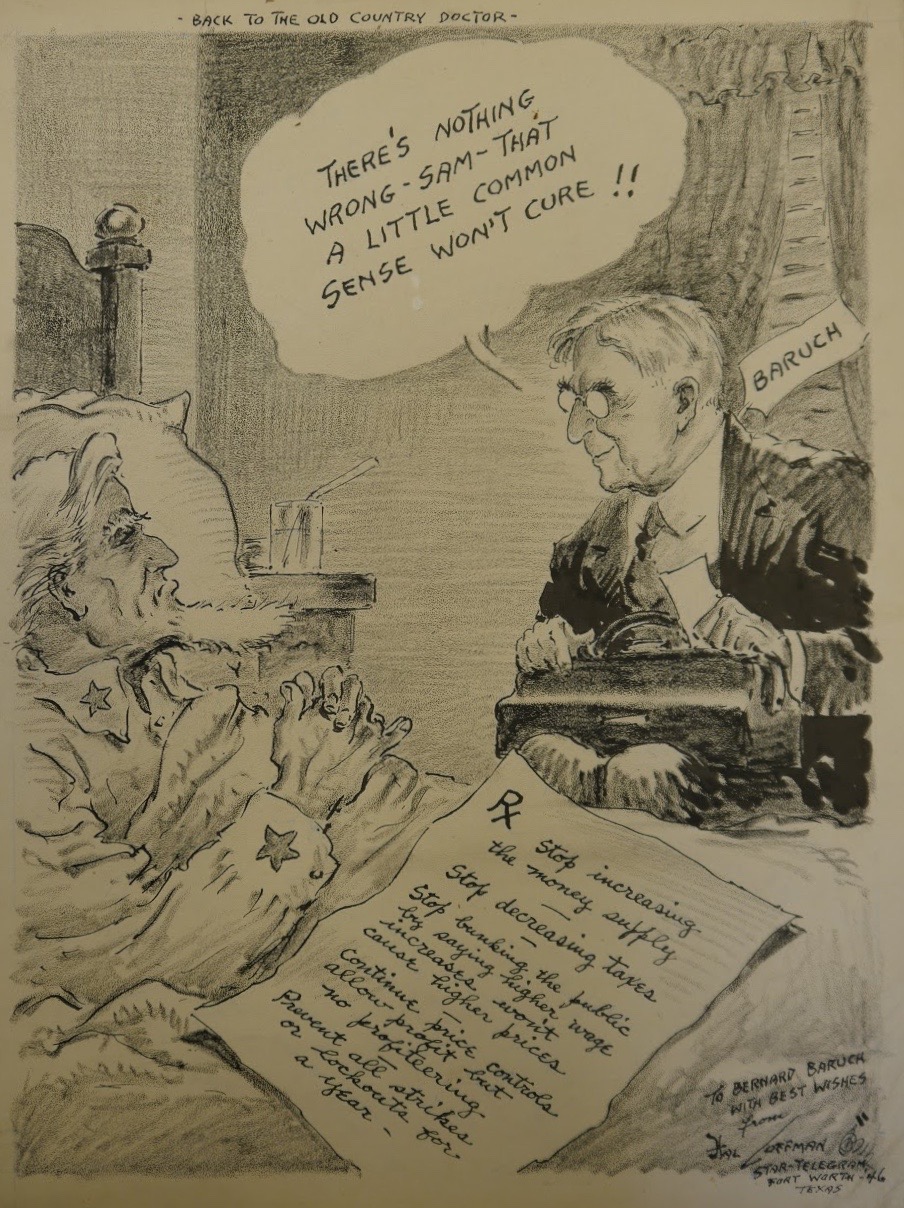 - BACK TO THE OLD COUNTRY DOCTOR -
THERE'S NOTHING
WRONG - SAM - THAT
A LITTLE COMMON
SENSE WON'T CURE !!
BARUCH
℞
Stop increasing
the money supply
—
Stop decreasing taxes
—
Stop bunking the public
by saying higher wage
increases wont
cause higher prices
—
Continue price controls
allow profit but
no profiteering
—
Prevent all strikes
or lockouts for
a year -
TO BERNARD BARUCH
WITH BEST WISHES
from
HAL COFFMAN
STAR-TELEGRAM
FORT WORTH - 46
TEXAS